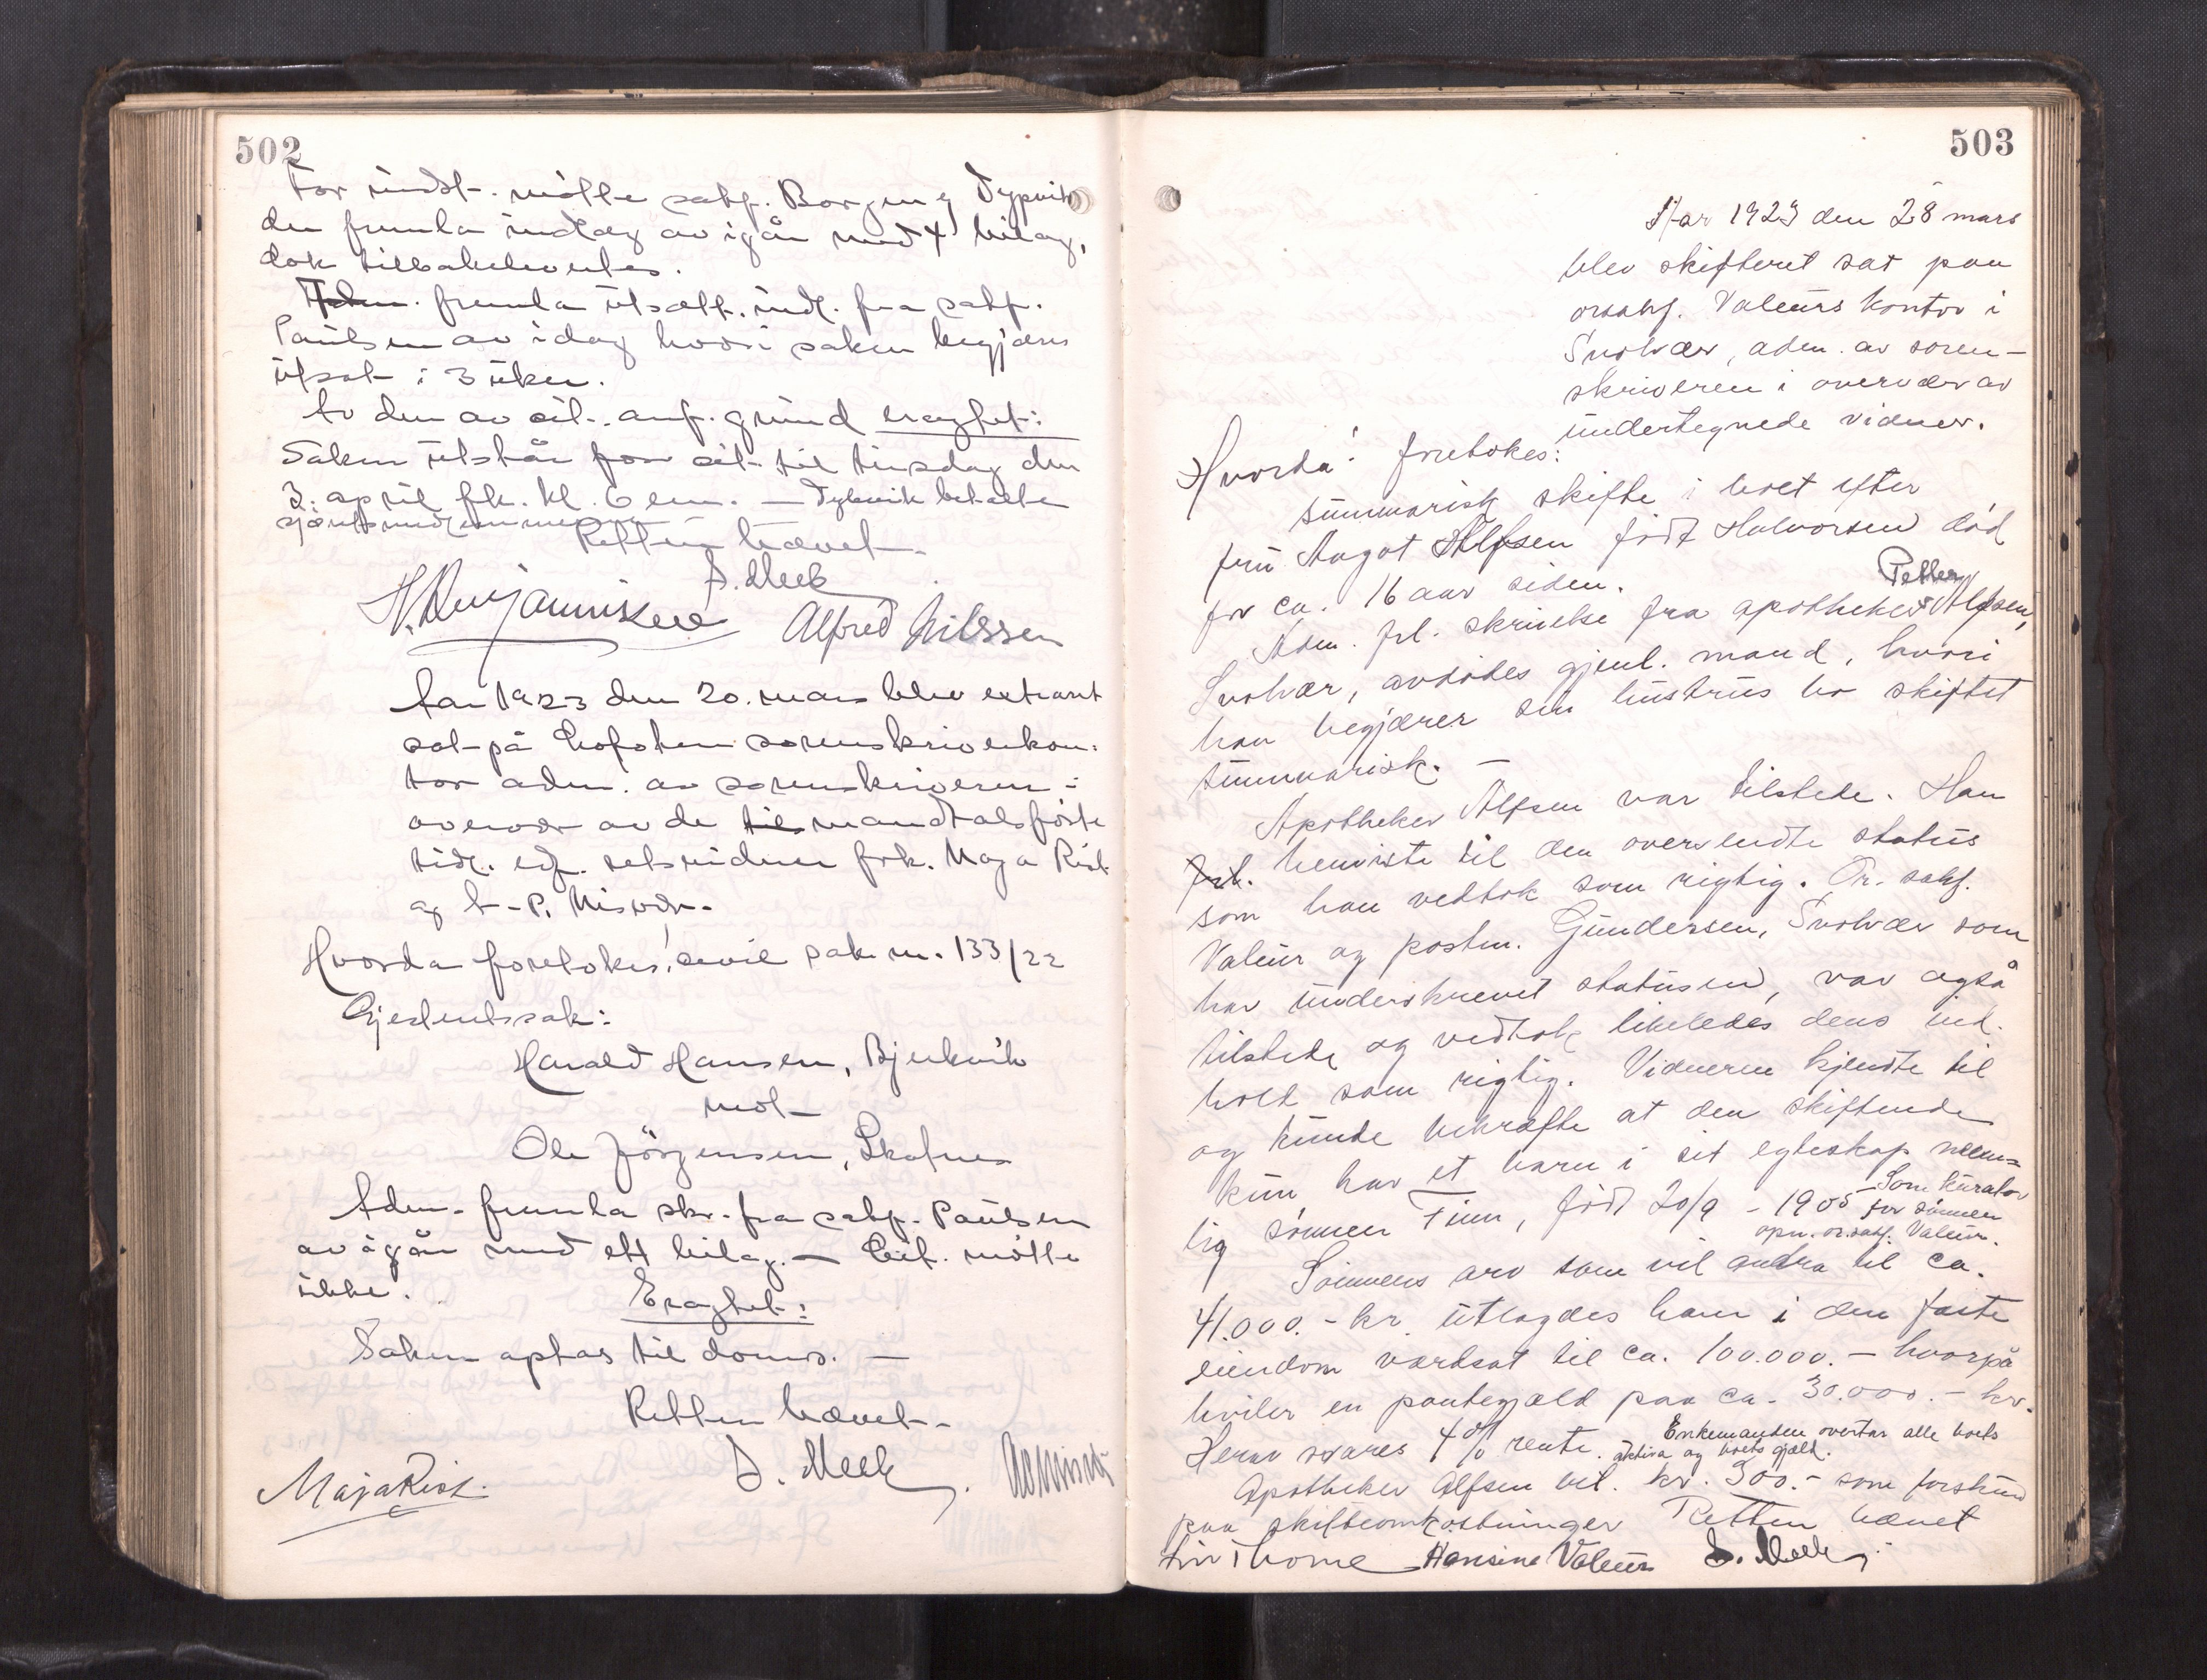 502
For indst. møtte sakf. Borgen og Dypvik
den fremla indlæg av igår med 4 bilag,
dok tilbakeleveres.
Adm. fremla utsætt. indl. fra sakf.
Paulsen av idag hvori saken begjæres
utsat i 3 uker.
Av den av cit. anf. grund eragtet:
Saken utstår for cit. til tirsdag den
3. april fk. kl. 6 em. —
Retten hævet.
S. Meek
Alfred Nilssen
Aar 1923 den 20. mars blev extraret
sat på Lofoten sorenskriverkon-
tor adm. av sorenskriveren i
overvær av de til mandtalsførte
tidl. edf. retsvidner frk. Maja Rist
og
Hvorda foretokes: sivil sak nr. 133/22
Gjesterets sak:
Harald Hansen, Bjerkvik
mot
Ole Jörgensen, Skafnes
Adm. fremla skr. fra sakf. Paulsen
av igår med ett bilag. — Cit. møtte
ikke.
Eragtet:
Saken optas til doms. —
Retten hævet.
Maja Rist. S. Meek
503
Aar 1923 den 28 mars
blev skifteret sat paa
orsakf. Valeurs kontor i
Svolvær, adm. av soren-
skriveren i overvær av
undertegnede vidner.
Hvorda foretokes:
summarisk skifte i boet efter
fru Aagot Alfsen født Halvorsen död
for ca. 16 aar siden.
Adm. frl. skrivelse fra apotheker Petter Alfsen,
Svolvær, avdødes gjenl. mand, hvori
han begjærer sin hustrus bo skiftet
summarisk. —
Apotheker Alfsen var tilstede. Han
frl. henviste til den oversendte status
som han vedtok som rigtig. Or. sakf.
Valeur og postm. Gundersen, Svolvær som
har underskrevet statusen, var også
tilstede og vedtok likeledes dens ind-
hold som rigtig. Vidnerne kjendte til
og kunde bekræfte at den skiftende
kun har et barn i sit egteskap nem-
lig sønnen Finn, född 20/9 - 1905 — Som kurator
for sønnen
opn. or.sakf. Valeur.
Sønnens arv som vil andra til ca.
41.000.- kr. utlagdes ham i den faste
eiendom værdsat til ca. 100.000.- hvorpå
hviler en pantegjæld paa ca. 30.000.- kr.
Herav svares 4% rente. Enkemanden overtar alle boets
aktiva og boets gjæld.
Apotheker Alfsen bet. kr. 300.- som forskud
paa skifteomkostninger Retten hævet
Liv Thome Hansine Valeur S. Meek